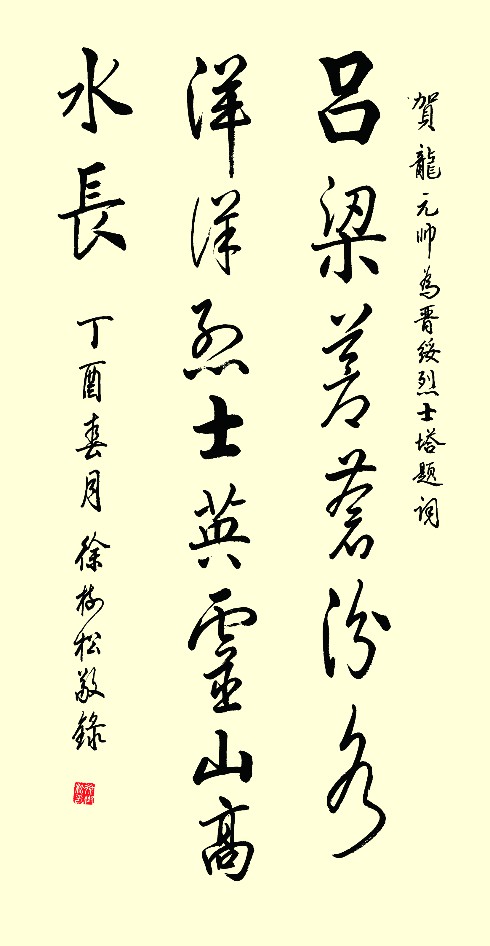 賀龍元帅為晋绥烈士塔题词
吕梁蒼蒼汾水
洋洋烈士英靈山高
水長
丁酉春月 徐树松敬錄